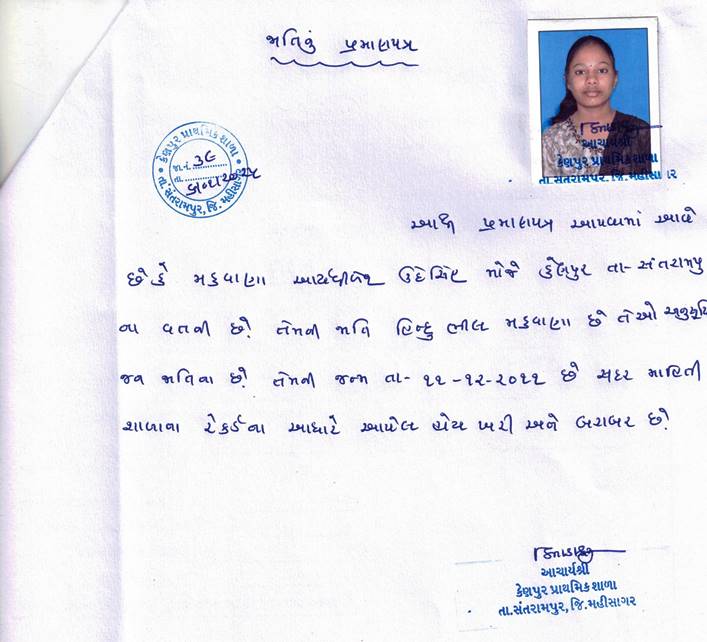 જાતિનું પ્રમાણપત્ર
આચાર્યશ્રી
કેણપુર પ્રાથમિક શાળા
તા.સંતરામપુર. જિ.મહીસાગર
કેણપુર પ્રાથમિક શાળા
જા.નં. ૩૯
તા.
તા.સંતરામપુર, જિ.મહીસાગર
આથી પ્રમાણપત્ર આપવામાં આવે
છે કે મકવાણા ઉદેસિંહ મોજે કેણપુર તા- સંતરામપુ
ના વતની છે. તેમની જાતિ હિન્દુ ભીલ મકવાણા છે તેઓ અનુસૂચિ
જન જાતિના છે. તેમની જન્મ તા- ૧૧-૧૨-૨૦૧૧ છે સદર માહિતી
શાળાના રેકર્ડના આધારે આપેલ હોય ખરી અને બરાબર છે.
આચાર્યશ્રી
કેણપુર પ્રાથમિક શાળા
તા.સંતરામપુર, જિ.મહીસાગર